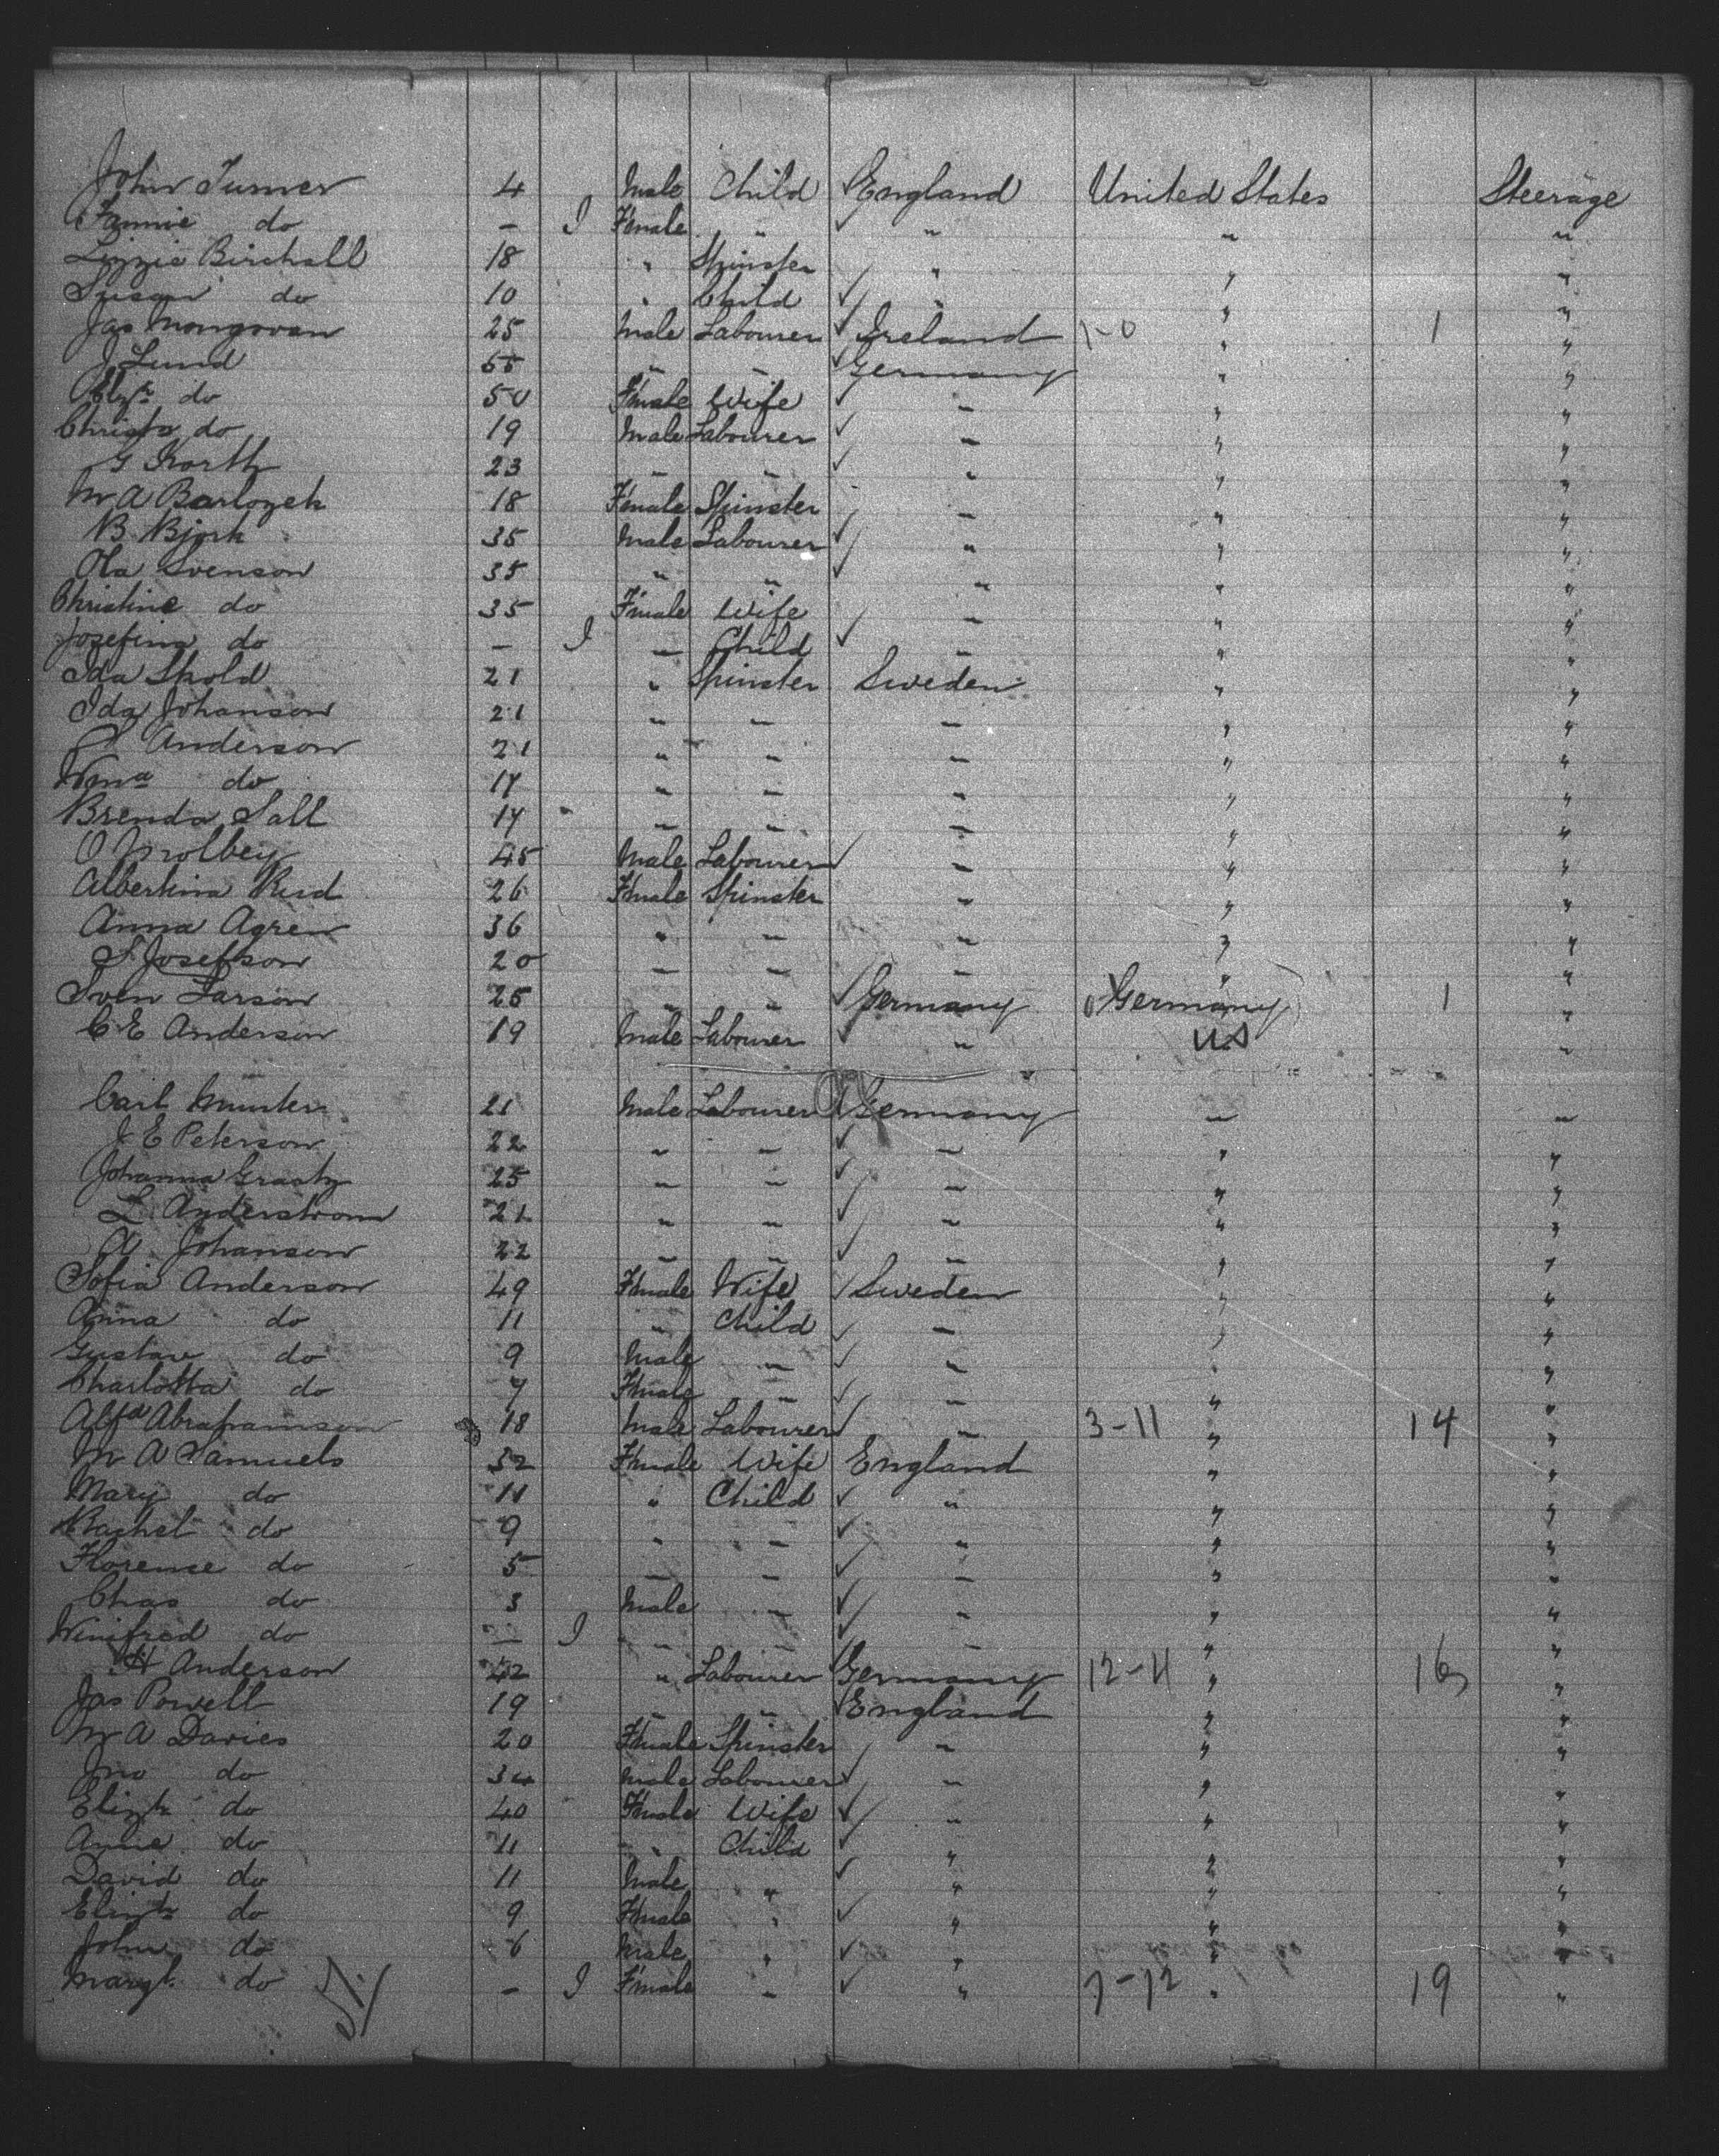 John Turner 4 Male Child England United States Steerage
Fannie do - I Female " " " "
Lizzie Birchall 18 " Spinster " " "
Susan do 10 " Child " " "
Jas Mongovan 25 Male Labourer Ireland 1-0 " 1 "
J Lund 55 " " Germany " "
Elzth do 50 Female Wife " " "
Christn do 19 Male Labourer " " "
G Korth 23 " " " " "
M A Barlozek 18 Female Spinster " " "
B Bjork 35 Male Labourer " " "
Ola Svenson 35 " " " " "
Christine do 35 Female Wife " " "
Josefina do - I " Child " " "
Ida Skold 21 " Spinster Sweden " "
Ida Johanson 21 " " " " "
Anderson 21 " " " " "
Wma do 17 " " " " "
Brenda Sall 17 " " " " "
O Molbey 45 Male Labourer " " "
Albertina Rud 26 Female Spinster " " "
Anna Agren 36 " " " " "
S Josefson 20 " " " " "
Sven Larson 25 " " Germany 0 Germany 1 "
C E Anderson 19 Male Labourer " US "
Carl Munster 21 Male Labourer Germany " "
J E Peterson 22 " " " " "
Johanna 25 " " " " "
L Anderstrom 21 " " " " "
A Johanson 22 " " " " "
Sofia Anderson 49 Female Wife Sweden " "
Anna do 11 " Child " " "
Gustav do 9 Male " " " "
Charlotta do 7 Female " " " "
Alfd Abrahamson 18 Male Labourer " 3-11 " 14 "
M A Samuels 32 Female Wife England " "
Mary do 11 " Child " " "
Rachel do 9 " " " " "
Florence do 5 " " " " "
Chas do 3 Male " " " "
Winifred do - I " " " " "
H Anderson 42 " Labourer Germany 12-4 " 16 "
Jas Powell 19 " " England " "
M A Davies 20 Female Spinster " " "
Jno do 34 Male Labourer " " "
Elizth do 40 Female Wife " " "
Annie do 11 " Child " " "
David do 11 Male " " " "
Elizth do 9 Female " " " "
John do 6 Male " " " "
Margt do - I Female " " 7-12 " 19 "